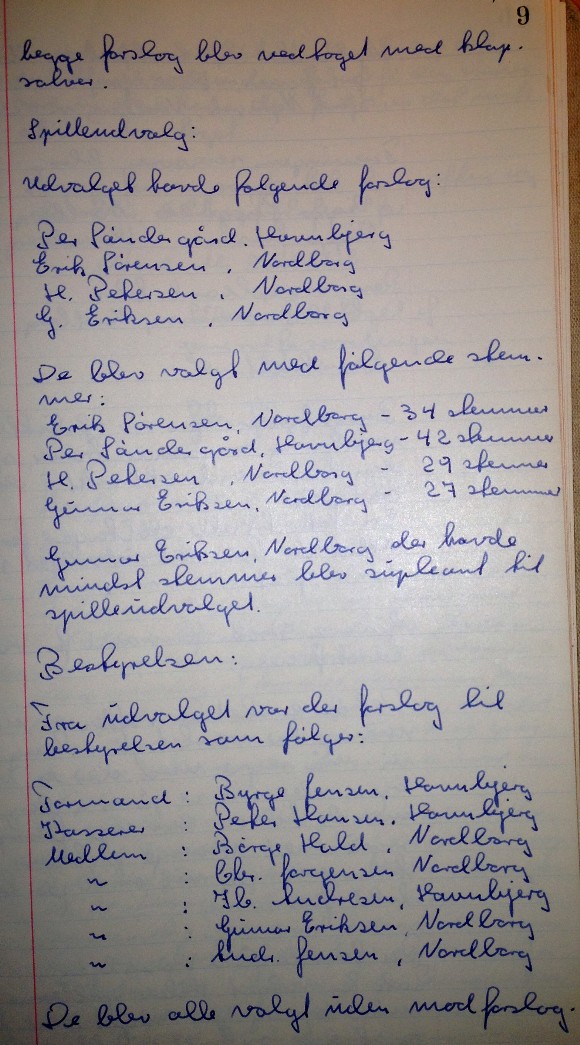 9
begge forslog blev vedtaget med klap-
salver.
Spilleudvalg:
Udvalget havde følgende forslog:
Per Söndergård, Havnbjerg
Erik Sörensen, Nordborg
H. Petersen, Nordborg
G. Eriksen, Nordborg
De blev valgt med følgende stem-
mer:
Erik Sörensen, Nordborg - 34 stemmer
Per Söndergård, Havnbjerg - 42 stemmer
H. Petersen, Nordborg - 29 stemmer
Gunnar Eriksen, Nordborg - 27 stemmer
Gunnar Eriksen, Nordborg der havde
mindst stemmer blev supleant til
spilleudvalget.
Bestyrelsen:
Fra udvalget var der forslog til
bestyrelsen som følger:
Formand : Byrge Jensen, Havnbjerg
Kasserer : Peter Hansen, Havnbjerg
Medlem : Börge Hald, Nordborg
" : Chr. Jørgensen Nordborg
" : Ib. Andresen, Havnbjerg
" : Gunnar Eriksen, Nordborg
" : Andr. Jensen, Nordborg
De blev alle valgt uden modforslog.